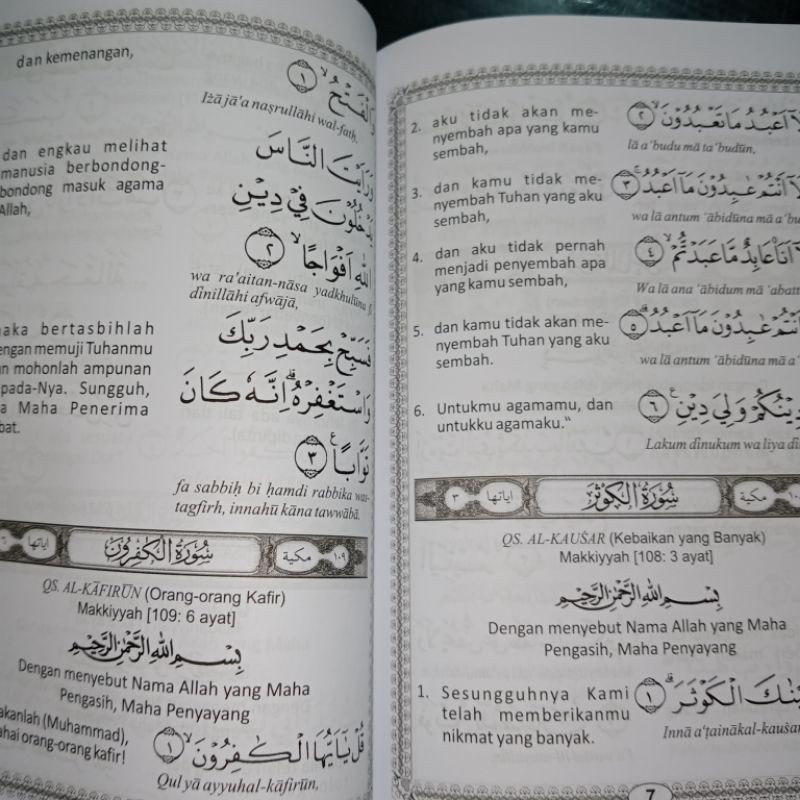 dan kemenangan,
وَالْفَتْحُ ۙ ١
Iżā jā'a naṣrullāhi wal-fatḥ.
dan engkau melihat
manusia berbondong-
bondong masuk agama
Allah,
النَّاسَ
يَدْخُلُوْنَ فِيْ دِيْنِ
اللّٰهِ اَفْوَاجًا ۙ ٢
wa ra'aitan-nāsa yadkhulūna f
dīnillāhi afwājā,
aka bertasbihlah
engan memuji Tuhanmu
n mohonlah ampunan
pada-Nya. Sungguh,
a Maha Penerima
bat.
فَسَبِّحْ بِحَمْدِ رَبِّكَ
وَاسْتَغْفِرْهُ ۗ اِنَّهٗ كَانَ
تَوَّابًا ࣖ ٣
fa sabbiḥ bi ḥamdi rabbika was-
tagfirh, innahū kāna tawwābā.
٦ اياتها سُوْرَةُ الْكٰفِرُوْنَ مكية ١٠٩
QS. AL-KĀFIRŪN (Orang-orang Kafir)
Makkiyyah [109: 6 ayat]
بِسْمِ اللّٰهِ الرَّحْمٰنِ الرَّحِيْمِ
Dengan menyebut Nama Allah yang Maha
Pengasih, Maha Penyayang
akanlah (Muhammad),
hai orang-orang kafir!
قُلْ يٰٓاَيُّهَا الْكٰفِرُوْنَ ۙ ١
Qul yā ayyuhal-kāfirūn,
2. aku tidak akan me-
nyembah apa yang kamu
sembah,
لَآ اَعْبُدُ مَا تَعْبُدُوْنَ ۙ ٢
lā a'budu mā ta'budūn.
3. dan kamu tidak me-
nyembah Tuhan yang aku
sembah,
لَآ اَنْتُمْ عٰبِدُوْنَ مَآ اَعْبُدُ ۚ ٣
wa lā antum 'ābidūna mā a'bu
4. dan aku tidak pernah
menjadi penyembah apa
yang kamu sembah,
لَآ اَنَا۠ عَابِدٌ مَّا عَبَدْتُّمْ ۙ ٤
Wa lā ana 'ābidum mā 'abatt
5. dan kamu tidak akan me-
nyembah Tuhan yang aku
sembah.
اَنْتُمْ عٰبِدُوْنَ مَآ اَعْبُدُ ۗ ٥
wa lā antum 'ābidūna mā a'
6. Untukmu agamamu, dan
untukku agamaku."
دِيْنُكُمْ وَلِيَ دِيْنِ ࣖ ٦
Lakum dīnukum wa liya dī
٣ اياتها سُوْرَةُ الْكَوْثَرِ مكية
QS. AL-KAUṠAR (Kebaikan yang Banyak)
Makkiyyah [108: 3 ayat]
بِسْمِ اللّٰهِ الرَّحْمٰنِ الرَّحِيْمِ
Dengan menyebut Nama Allah yang Maha
Pengasih, Maha Penyayang
1. Sesungguhnya Kami
telah memberikanmu
nikmat yang banyak.
يْنٰكَ الْكَوْثَرَ ۗ ١
Innā a'ṭainākal-kauṡar
7